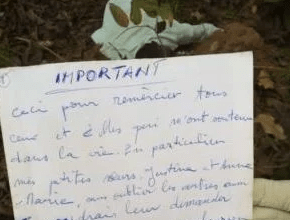 IMPORTANT
Ceci pour remercier tous
ceux et celles qui m'ont soutenu
dans la vie. En particulier
mes petites sœurs Justine et Anne
-Marie, sans oublier les autres
leur demander